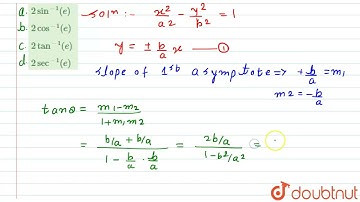 a. 2 sin⁻¹(e)
b. 2 cos⁻¹(e)
c. 2 tan⁻¹(e)
d. 2 sec⁻¹(e)
Soln :- x²/a² - y²/b² = 1
y = ± b/a x — ①
slope of 1st asymptote ⇒ + b/a = m₁
m2 = - b/a
tanθ = m₁-m₂ / 1+m₁m₂
= b/a + b/a / 1 - b/a · b/a = 2b/a / 1-b²/a² =
doubtnut